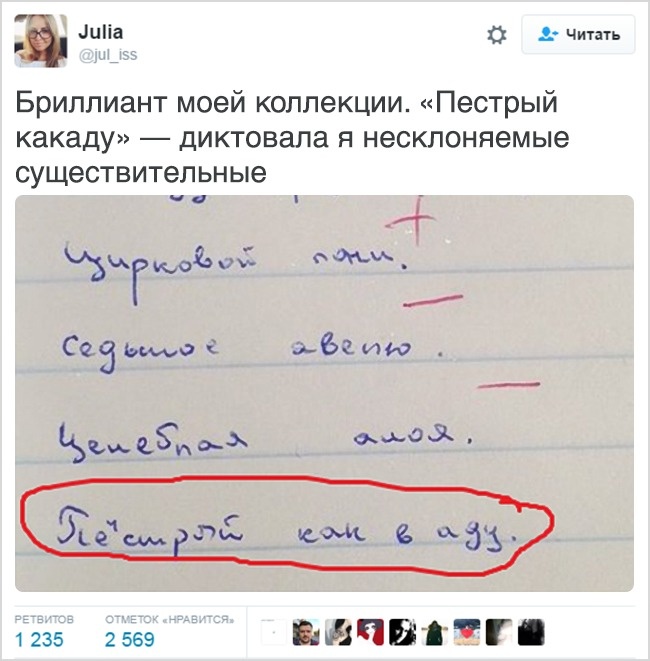 Julia
@jul_iss
Читать
Бриллиант моей коллекции. «Пестрый
какаду» — диктовала я несклоняемые
существительные
Цирковой пони.
Седьмое авеню.
Целебная алоя.
Пёстрый как в аду.
РЕТВИТОВ
ОТМЕТОК «НРАВИТСЯ»
1 235
2 569